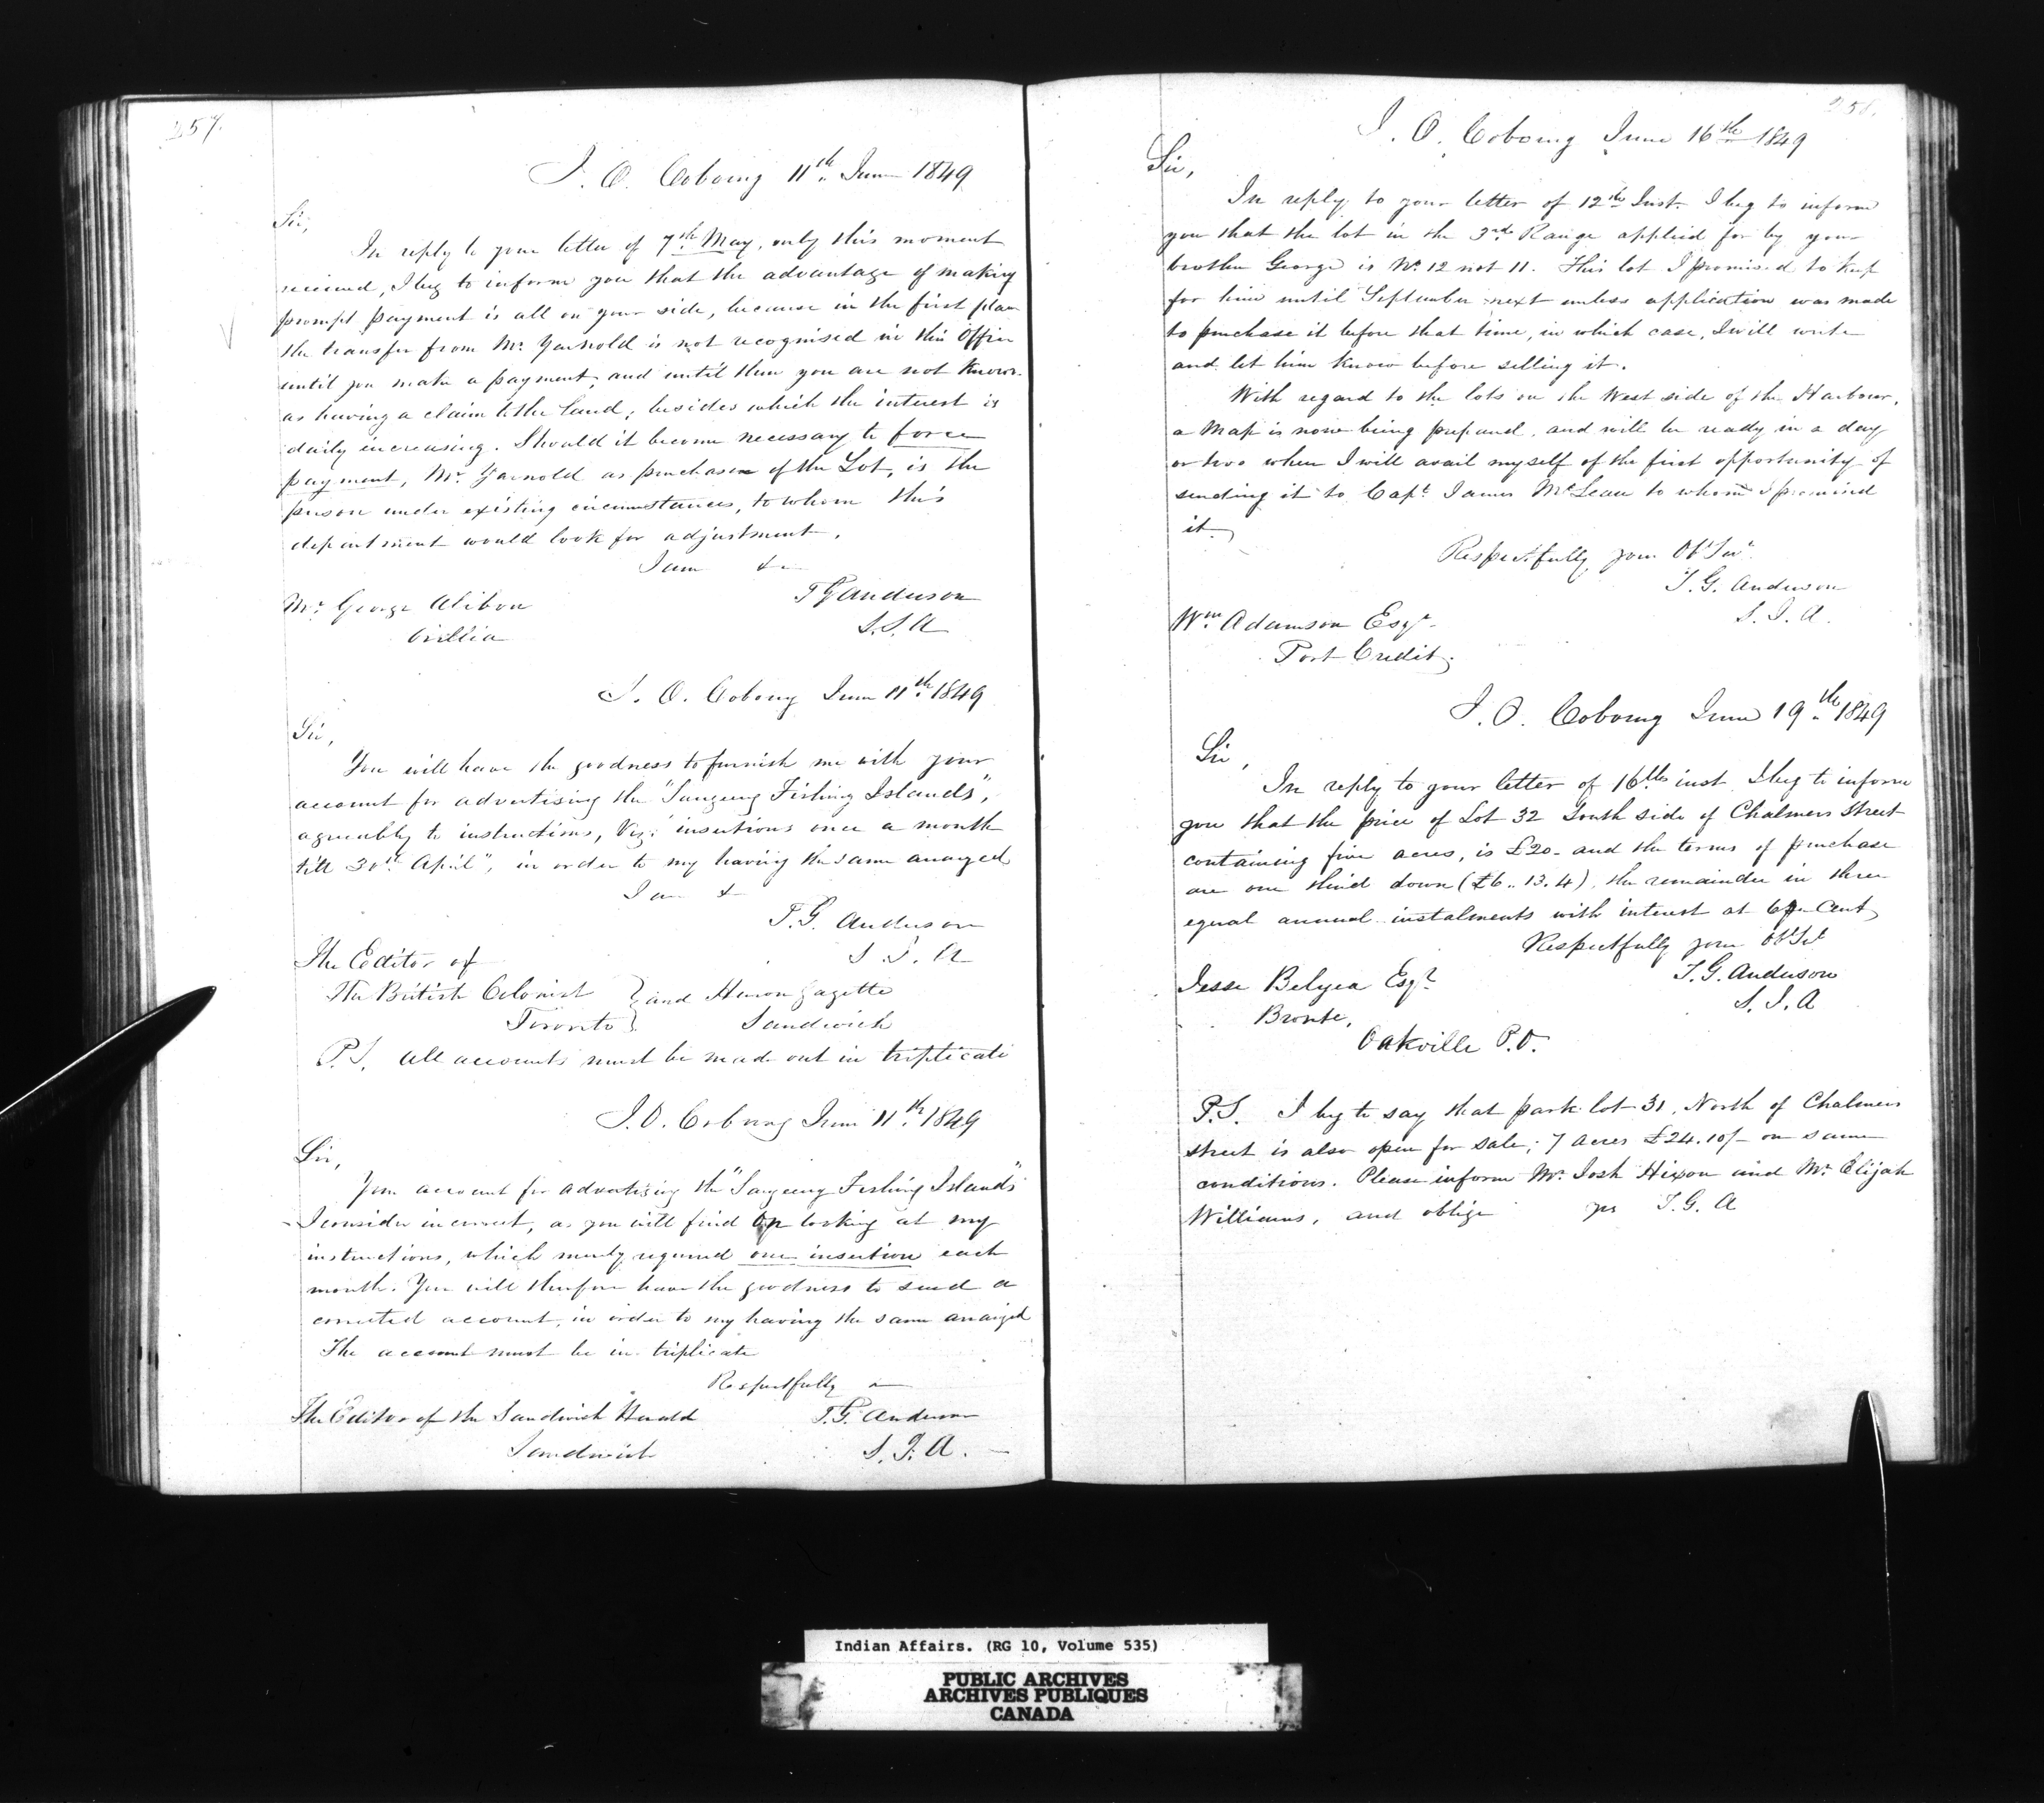 257.
I. O. Cobourg 11th June 1849
Sir,
In reply to your letter of 7th May, only this moment
received, I beg to inform you that the advantage of making
prompt payment is all on your side, because in the first place
the transfer from Mr. Yarnold is not recognised in this Office
until you make a payment, and until then you are not known
as having a claim to the land; besides which the interest is
daily increasing. Should it become necessary to force
payment, Mr. Yarnold as purchaser of the Lot, is the
person under existing circumstances, to whom this
department would look for adjustment.
I am &c
T G Anderson
S. I. A
Mr. George Alibon
Orillia
I. O. Cobourg June 11th 1849
Sir,
You will have the goodness to furnish me with your
account for advertising the "Saugeeng Fishing Islands",
agreeably to instructions, Viz: "insertions once a month
till 30th April", in order to my having the same arranged
I am &
T. G. Anderson
S. I. A
The Editor of
The British Colonist } and Huron Gazette
Toronto } Sandwich
P.S. All accounts must be made out in triplicate
I. O. Cobourg June 11th 1849
Sir,
Your account for advertising the "Saugeeng Fishing Islands"
I consider incorrect, as you will find on looking at my
instructions, which merely required one insertion each
month. You will therefore have the goodness to send a
corrected account, in order to my having the same arranged
The account must be in triplicate
Respectfully
The Editor of the Sandwich Herald
T. G. Anderson
Sandwich
S. I. A.
258.
I. O. Cobourg June 16th 1849
Sir,
In reply to your letter of 12th Inst. I beg to inform
you that the lot in the 3rd Range applied for by your
brother George is No. 12 not 11. This lot I promised to keep
for him until September next unless application was made
to purchase it before that time, in which case, I will write
and let him know before selling it.
With regard to the lots on the West side of the Harbour,
a Map is now being prepared, and will be ready in a day
or two when I will avail myself of the first opportunity of
sending it to Capt. James McLean to whom I promised
it.
Respectfully your Obt Svt
T. G. Anderson
S. I. A.
Wm Adamson Esqr
Port Credit
I. O. Cobourg June 19th 1849
Sir,
In reply to your letter of 16th inst I beg to inform
you that the price of Lot 32 South side of Chalmers Street
containing five acres, is £20- and the terms of purchase
are one third down (£6.. 13. 4), the remainder in three
equal annual instalments with interest at 6 per Cent
Respectfully your Obt Svt
T. G. Anderson
S. I. A
Jesse Belyea Esqr
Bronte,
Oakville P.O.
P.S. I beg to say that park lot 31, North of Chalmers
street is also open for sale; 7 Acres £24.10/- on same
conditions. Please inform Mr. Josh Hixon and Mr. Elijah
Williams, and oblige yrs T. G. A
Indian Affairs. (RG 10, Volume 535)
PUBLIC ARCHIVES
ARCHIVES PUBLIQUES
CANADA